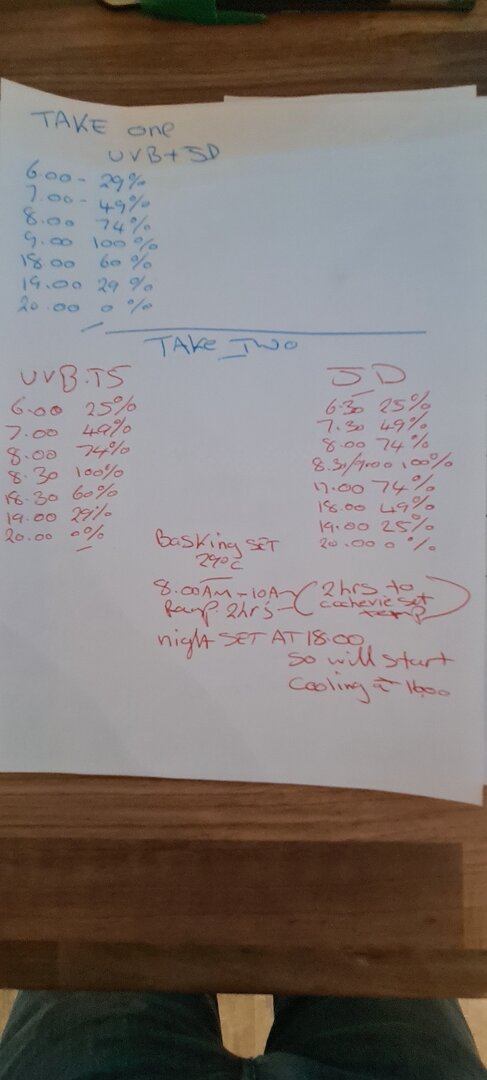 TAKE one
UVB + JD
6.00 - 29%
7.00 - 49%
8.00 74%
9.00 100%
18.00 60%
19.00 29%
20.00 0%
TAKE TWO
UVB.T5
6.00 25%
7.00 49%
8.00 74%
8.30 100%
18.30 60%
19.00 29%
20.00 0%
JD
6.30 25%
7.30 49%
8.00 74%
8.30/9.00 100%
17.00 74%
18.00 49%
19.00 25%
20.00 0%
Basking SET
29°C
8.00AM - 10A (2hrs to
Ramp 2hrs - cachevie set
temp)
night SET AT 18.00
so will start
Cooling @ 1600